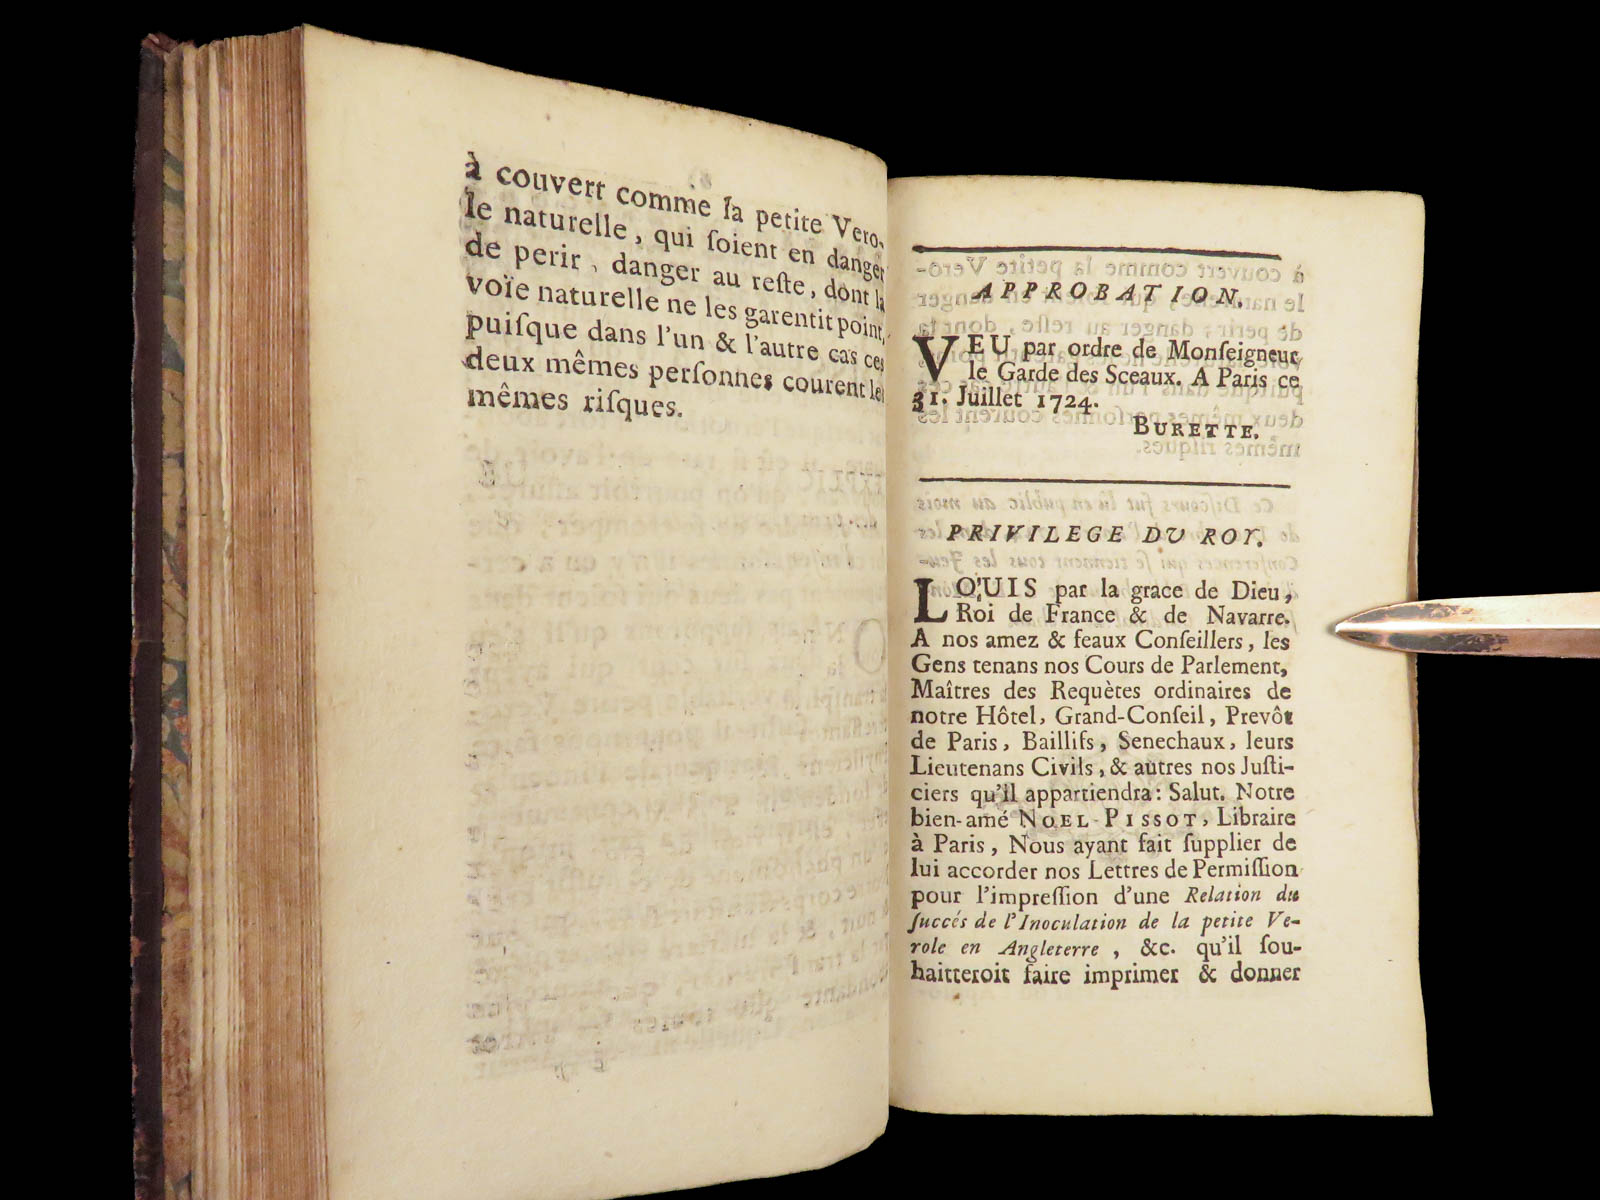 à couvert comme la petite Vero-
le naturelle, qui ſoient en danger
de perir, danger au reſte, dont la
voïe naturelle ne les garentit point,
puiſque dans l'un & l'autre cas ces
deux mêmes perſonnes courent les
mêmes riſques.
APPROBATION.
VEU par ordre de Monſeigneur
le Garde des Sceaux. A Paris ce
31. Juillet 1724.
BURETTE.
PRIVILEGE DU ROY.
LOUIS par la grace de Dieu,
Roi de France & de Navarre.
A nos amez & feaux Conſeillers, les
Gens tenans nos Cours de Parlement,
Maîtres des Requètes ordinaires de
notre Hôtel, Grand-Conſeil, Prevôt
de Paris, Baillifs, Senechaux, leurs
Lieutenans Civils, & autres nos Juſti-
ciers qu'il appartiendra: Salut. Notre
bien-amé NOEL PISSOT, Libraire
à Paris, Nous ayant fait ſupplier de
lui accorder nos Lettres de Permiſſion
pour l'impreſſion d'une Relation du
ſuccés de l'Inoculation de la petite Ve-
role en Angleterre, &c. qu'il ſou-
haitteroit faire imprimer & donner